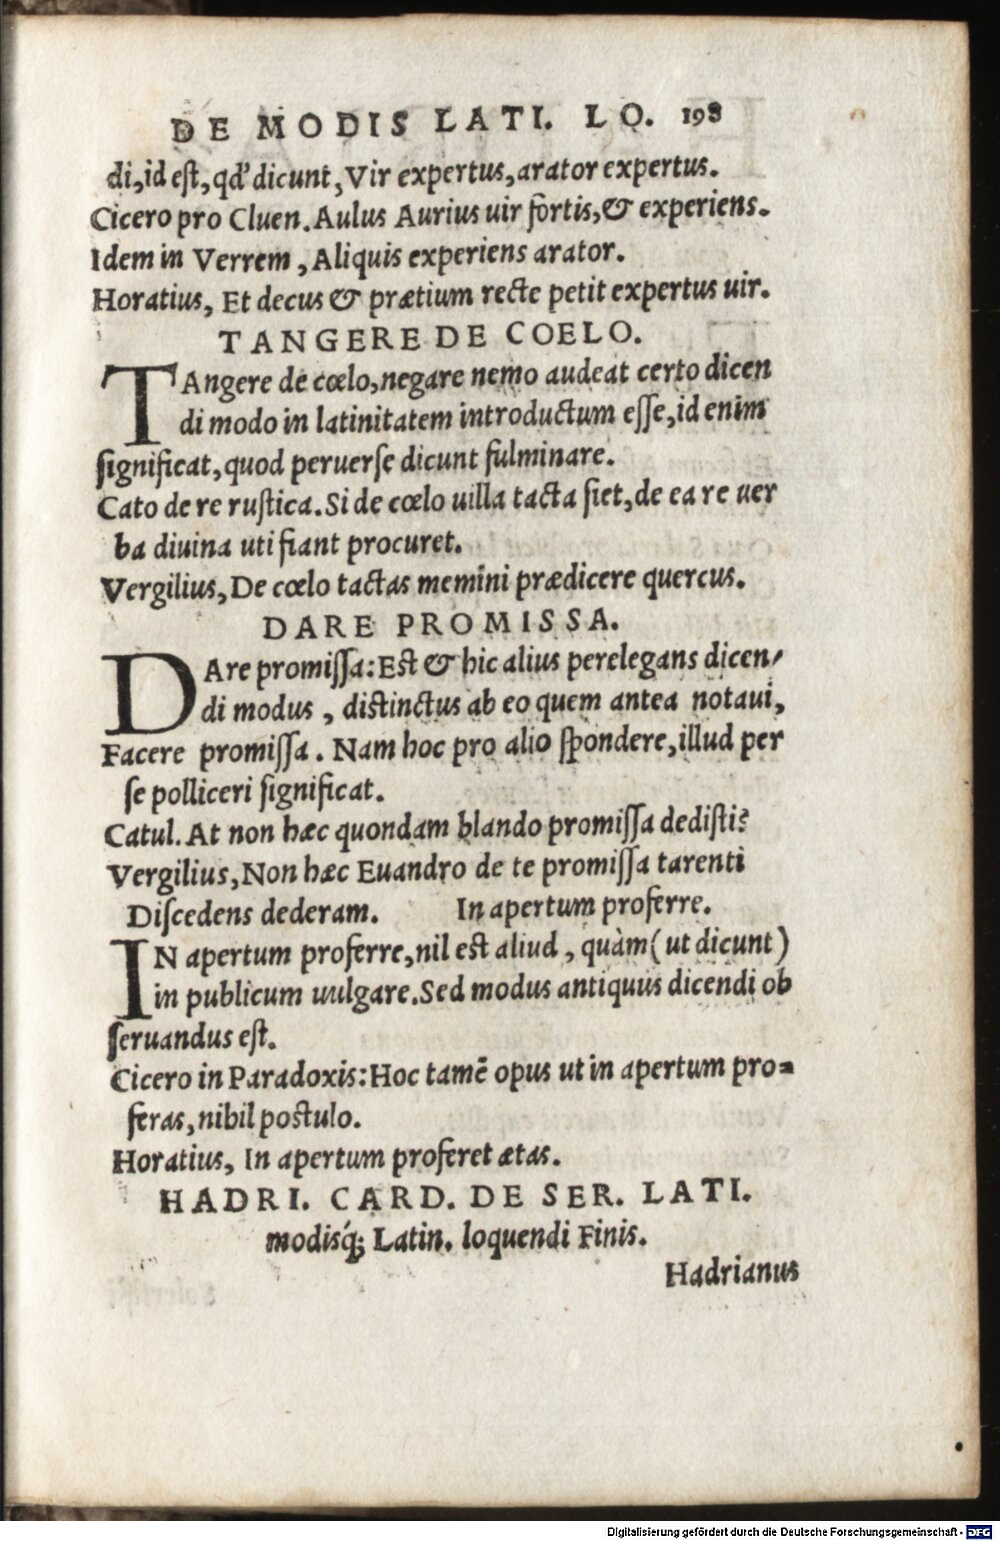 DE MODIS LATI. LO. 198
di, id eſt, qd' dicunt, Vir expertus, arator expertus.
Cicero pro Cluen. Aulus Aurius uir fortis, & experiens.
Idem in Verrem, Aliquis experiens arator.
Horatius, Et decus & prætium recte petit expertus uir.
TANGERE DE COELO.
TAngere de cœlo, negare nemo audeat certo dicen
di modo in latinitatem introductum eſſe, id enim
ſignificat, quod peruerſe dicunt fulminare.
Cato de re ruſtica. Si de cœlo uilla tacta ſiet, de ea re uer
ba diuina uti fiant procuret.
Vergilius, De cœlo tactas memini prædicere quercus.
DARE PROMISSA.
DAre promiſſa: Est & hic alius perelegans dicen-
di modus, distinctus ab eo quem antea notaui,
Facere promiſſa. Nam hoc pro alio ſpondere, illud per
ſe polliceri ſignificat.
Catul. At non hæc quondam blando promiſſa dediſti?
Vergilius, Non hæc Euandro de te promiſſa tarenti
Diſcedens dederam. In apertum proferre.
IN apertum proferre, nil est aliud, quàm (ut dicunt)
in publicum uulgare. Sed modus antiquus dicendi ob
ſeruandus eſt.
Cicero in Paradoxis: Hoc tamē opus ut in apertum pro-
feras, nihil postulo.
Horatius, In apertum proferet ætas.
HADRI. CARD. DE SER. LATI.
modisq́; Latin. loquendi Finis.
Hadrianus
Digitalisierung gefördert durch die Deutsche Forschungsgemeinschaft - DFG